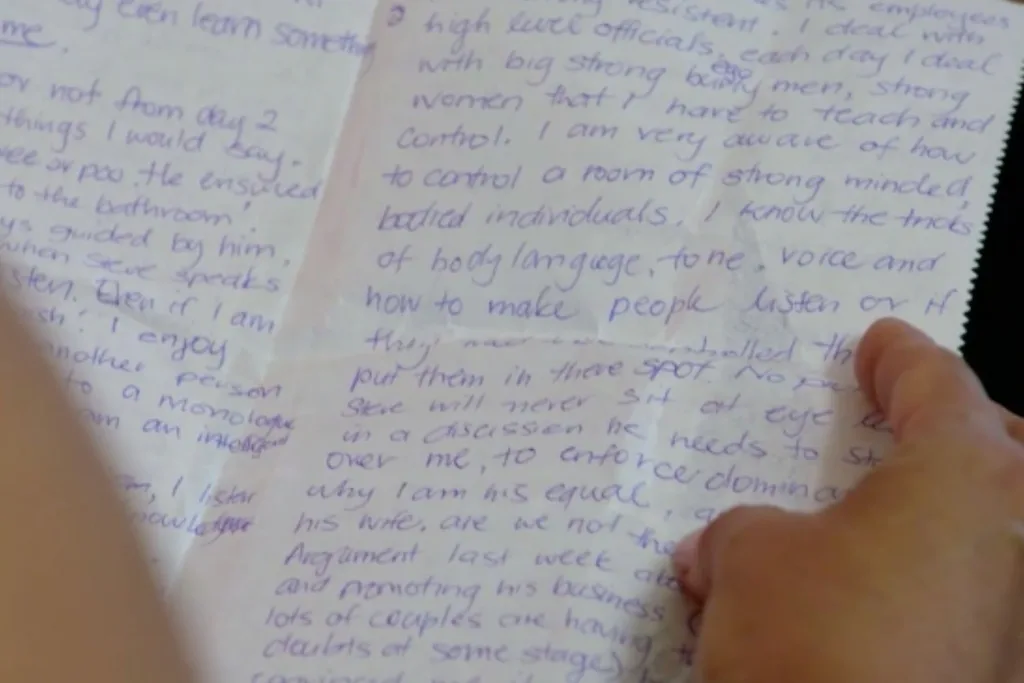 even learn something
me.
or not from day 2
things I would say.
wee or poo. He ensured
to the bathroom!
guided by him,
when Steve speaks
Even if I am
I enjoy
another person
to a monologue
am an intelligent
I listen
resistent. I deal with
high level officials, each day I deal
with big strong men, strong
women that I have to teach and
control. I am very aware of how
to control a room of strong minded,
bodied individuals. I know the tricks
of body language, tone, voice and
how to make people listen or if
they
put them in there spot. No
Steve will never sit at eye
in a discission he needs to
over me, to enforce
why I am his equal,
his wife, are we not the
Argument last week
and promoting his business
lots of couples are having
doubts at some stage)